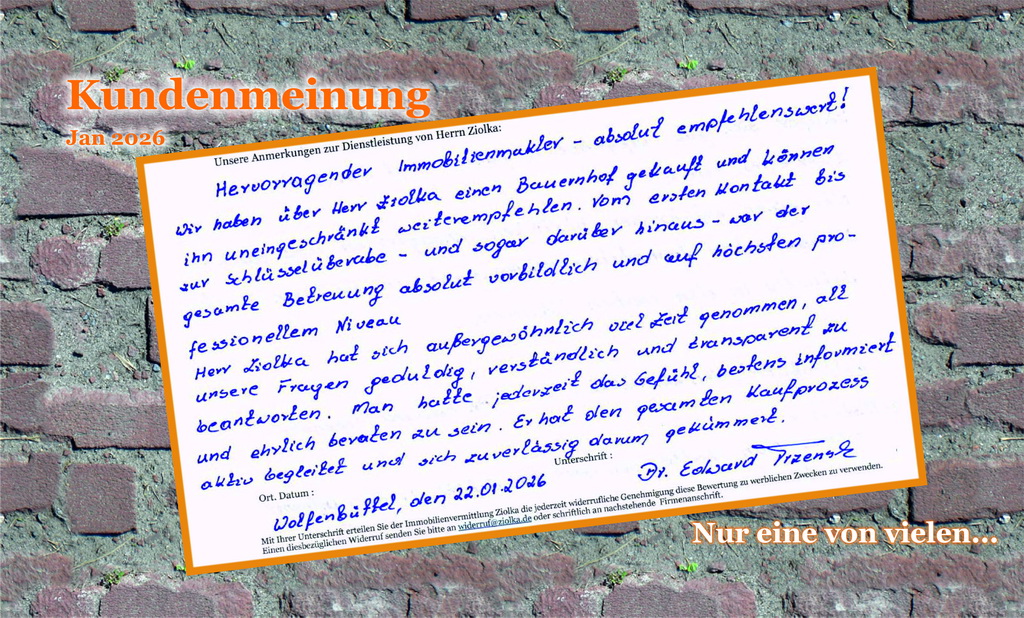 Kundenmeinung
Jan 2026
Unsere Anmerkungen zur Dienstleistung von Herrn Ziolka:
Hervorragender Immobilienmakler – absolut empfehlenswert!
Wir haben über Herr Ziolka einen Bauernhof gekauft und können
ihn uneingeschränkt weiterempfehlen. Vom ersten Kontakt bis
zur Schlüsselüberabe – und sogar darüber hinaus – war der
gesamte Betreuung absolut vorbildlich und auf höchsten pro-
fessionellem Niveau
Herr Ziolka hat sich außergewöhnlich viel Zeit genommen, all
unsere Fragen geduldig, verständlich und transparent zu
beantworten. Man hatte jederzeit das Gefühl, bestens informiert
und ehrlich beraten zu sein. Er hat den gesamten Kaufprozess
aktiv begleitet und sich zuverlässig darum gekümmert.
Ort. Datum :
Unterschrift :
Wolfenbüttel, den 22.01.2026
Dr. Edward
Mit Ihrer Unterschrift erteilen Sie der Immobilienvermittlung Ziolka die jederzeit widerrufliche Genehmigung diese Bewertung zu werblichen Zwecken zu verwenden.
Einen diesbezüglichen Widerruf senden Sie bitte an widerruf@ziolka.de oder schriftlich an nachstehende Firmenanschrift.
Nur eine von vielen...